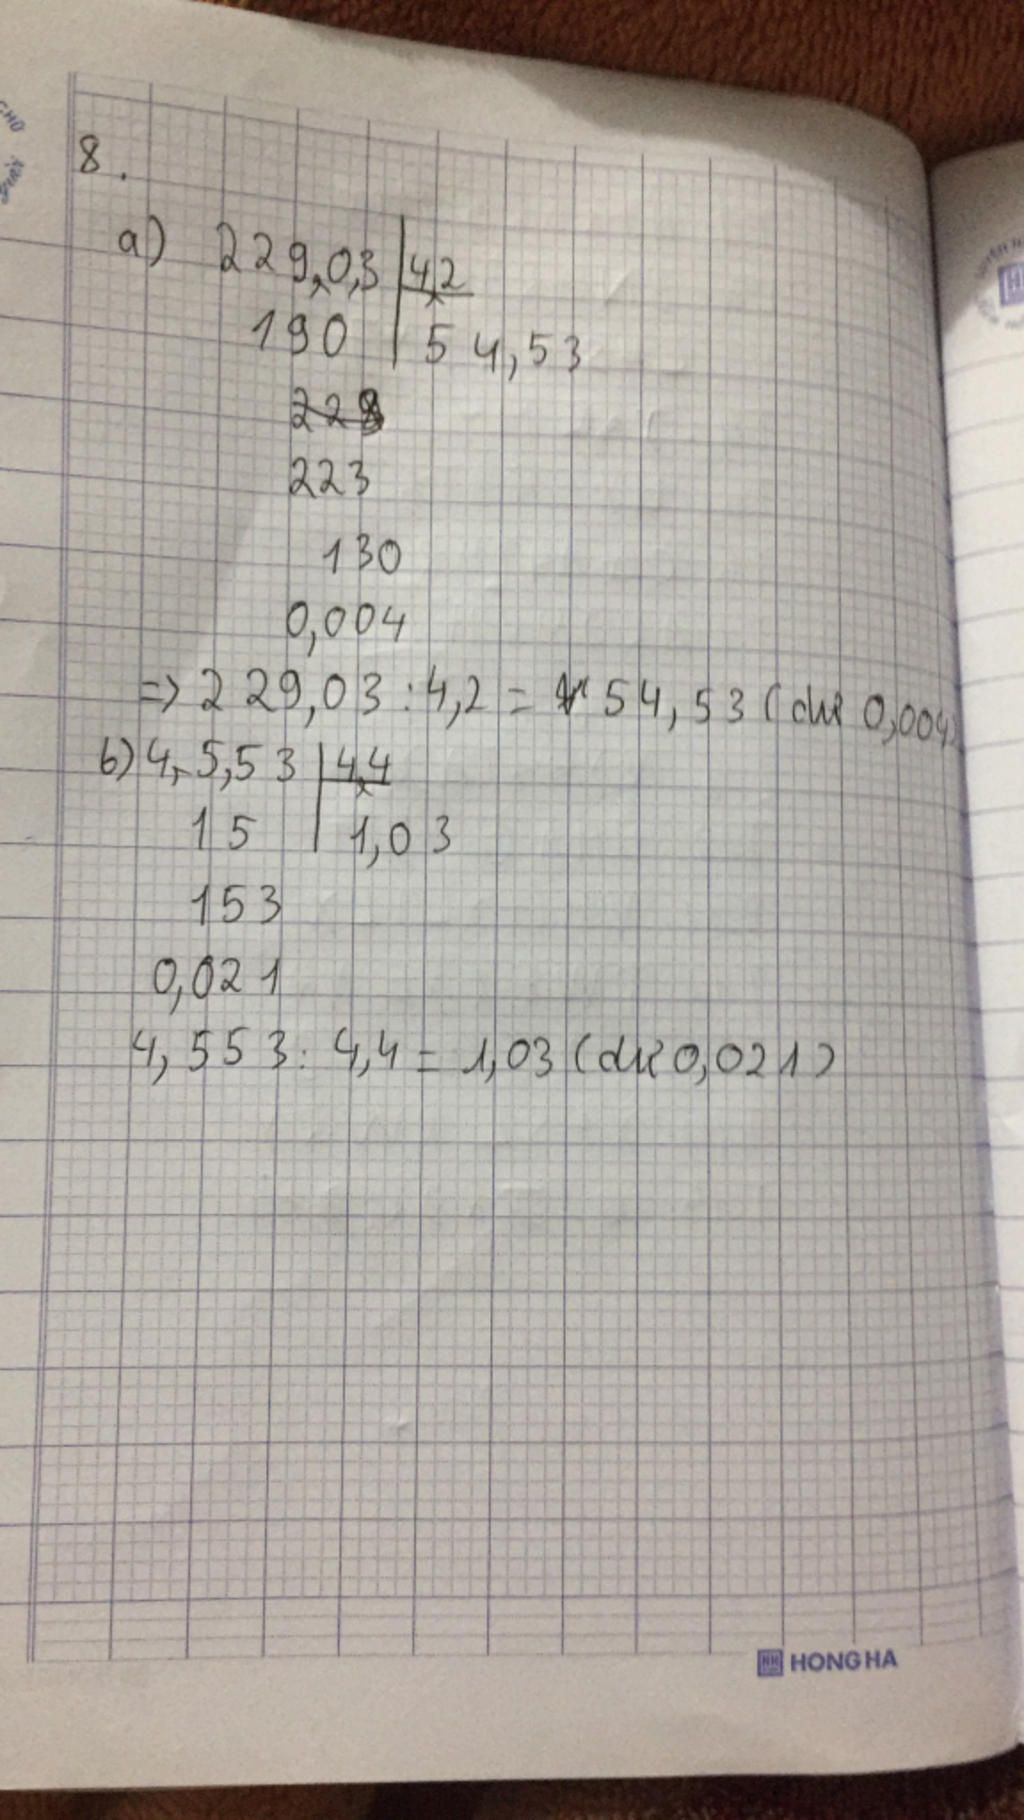 8.
a) 229,0,3 | 4,2
190 | 54,53
228
223
130
0,004
=> 229,03 : 4,2 = 54,53 (dư 0,004)
b) 4,5,53 | 4,4
15 | 1,03
153
0,021
4,553 : 4,4 = 1,03 (dư 0,021)
HONG HA